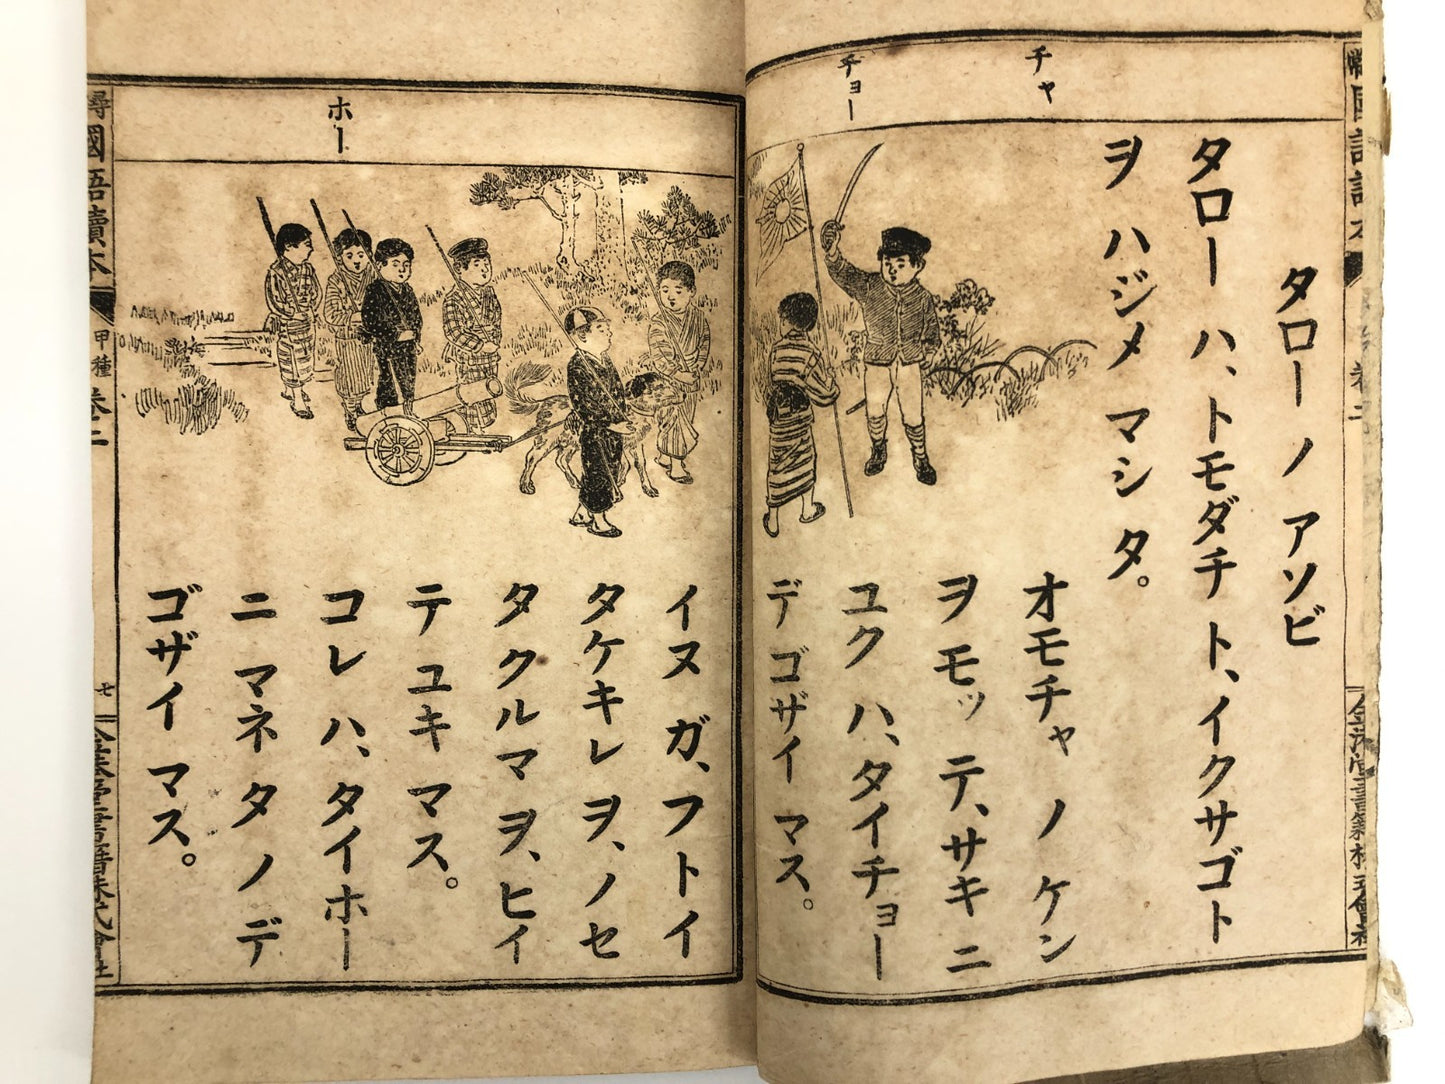 チャ
チョー
タロー ノ アソビ
タロー ハ、トモダチ ト、イクサゴト
ヲ ハジメ マシ タ。
オモチャ ノ ケン
ヲ モッ テ、サキ ニ
ユク ハ、タイチョー
デ ゴザイ マス。
ホー
イヌ ガ、フトイ
タケキレ ヲ、ノセ
タ クルマ ヲ、ヒイ
テ ユキ マス。
コレ ハ、タイホー
ニ マネタ ノ デ
ゴザイ マス。
尋國語讀本
甲種 卷二
七